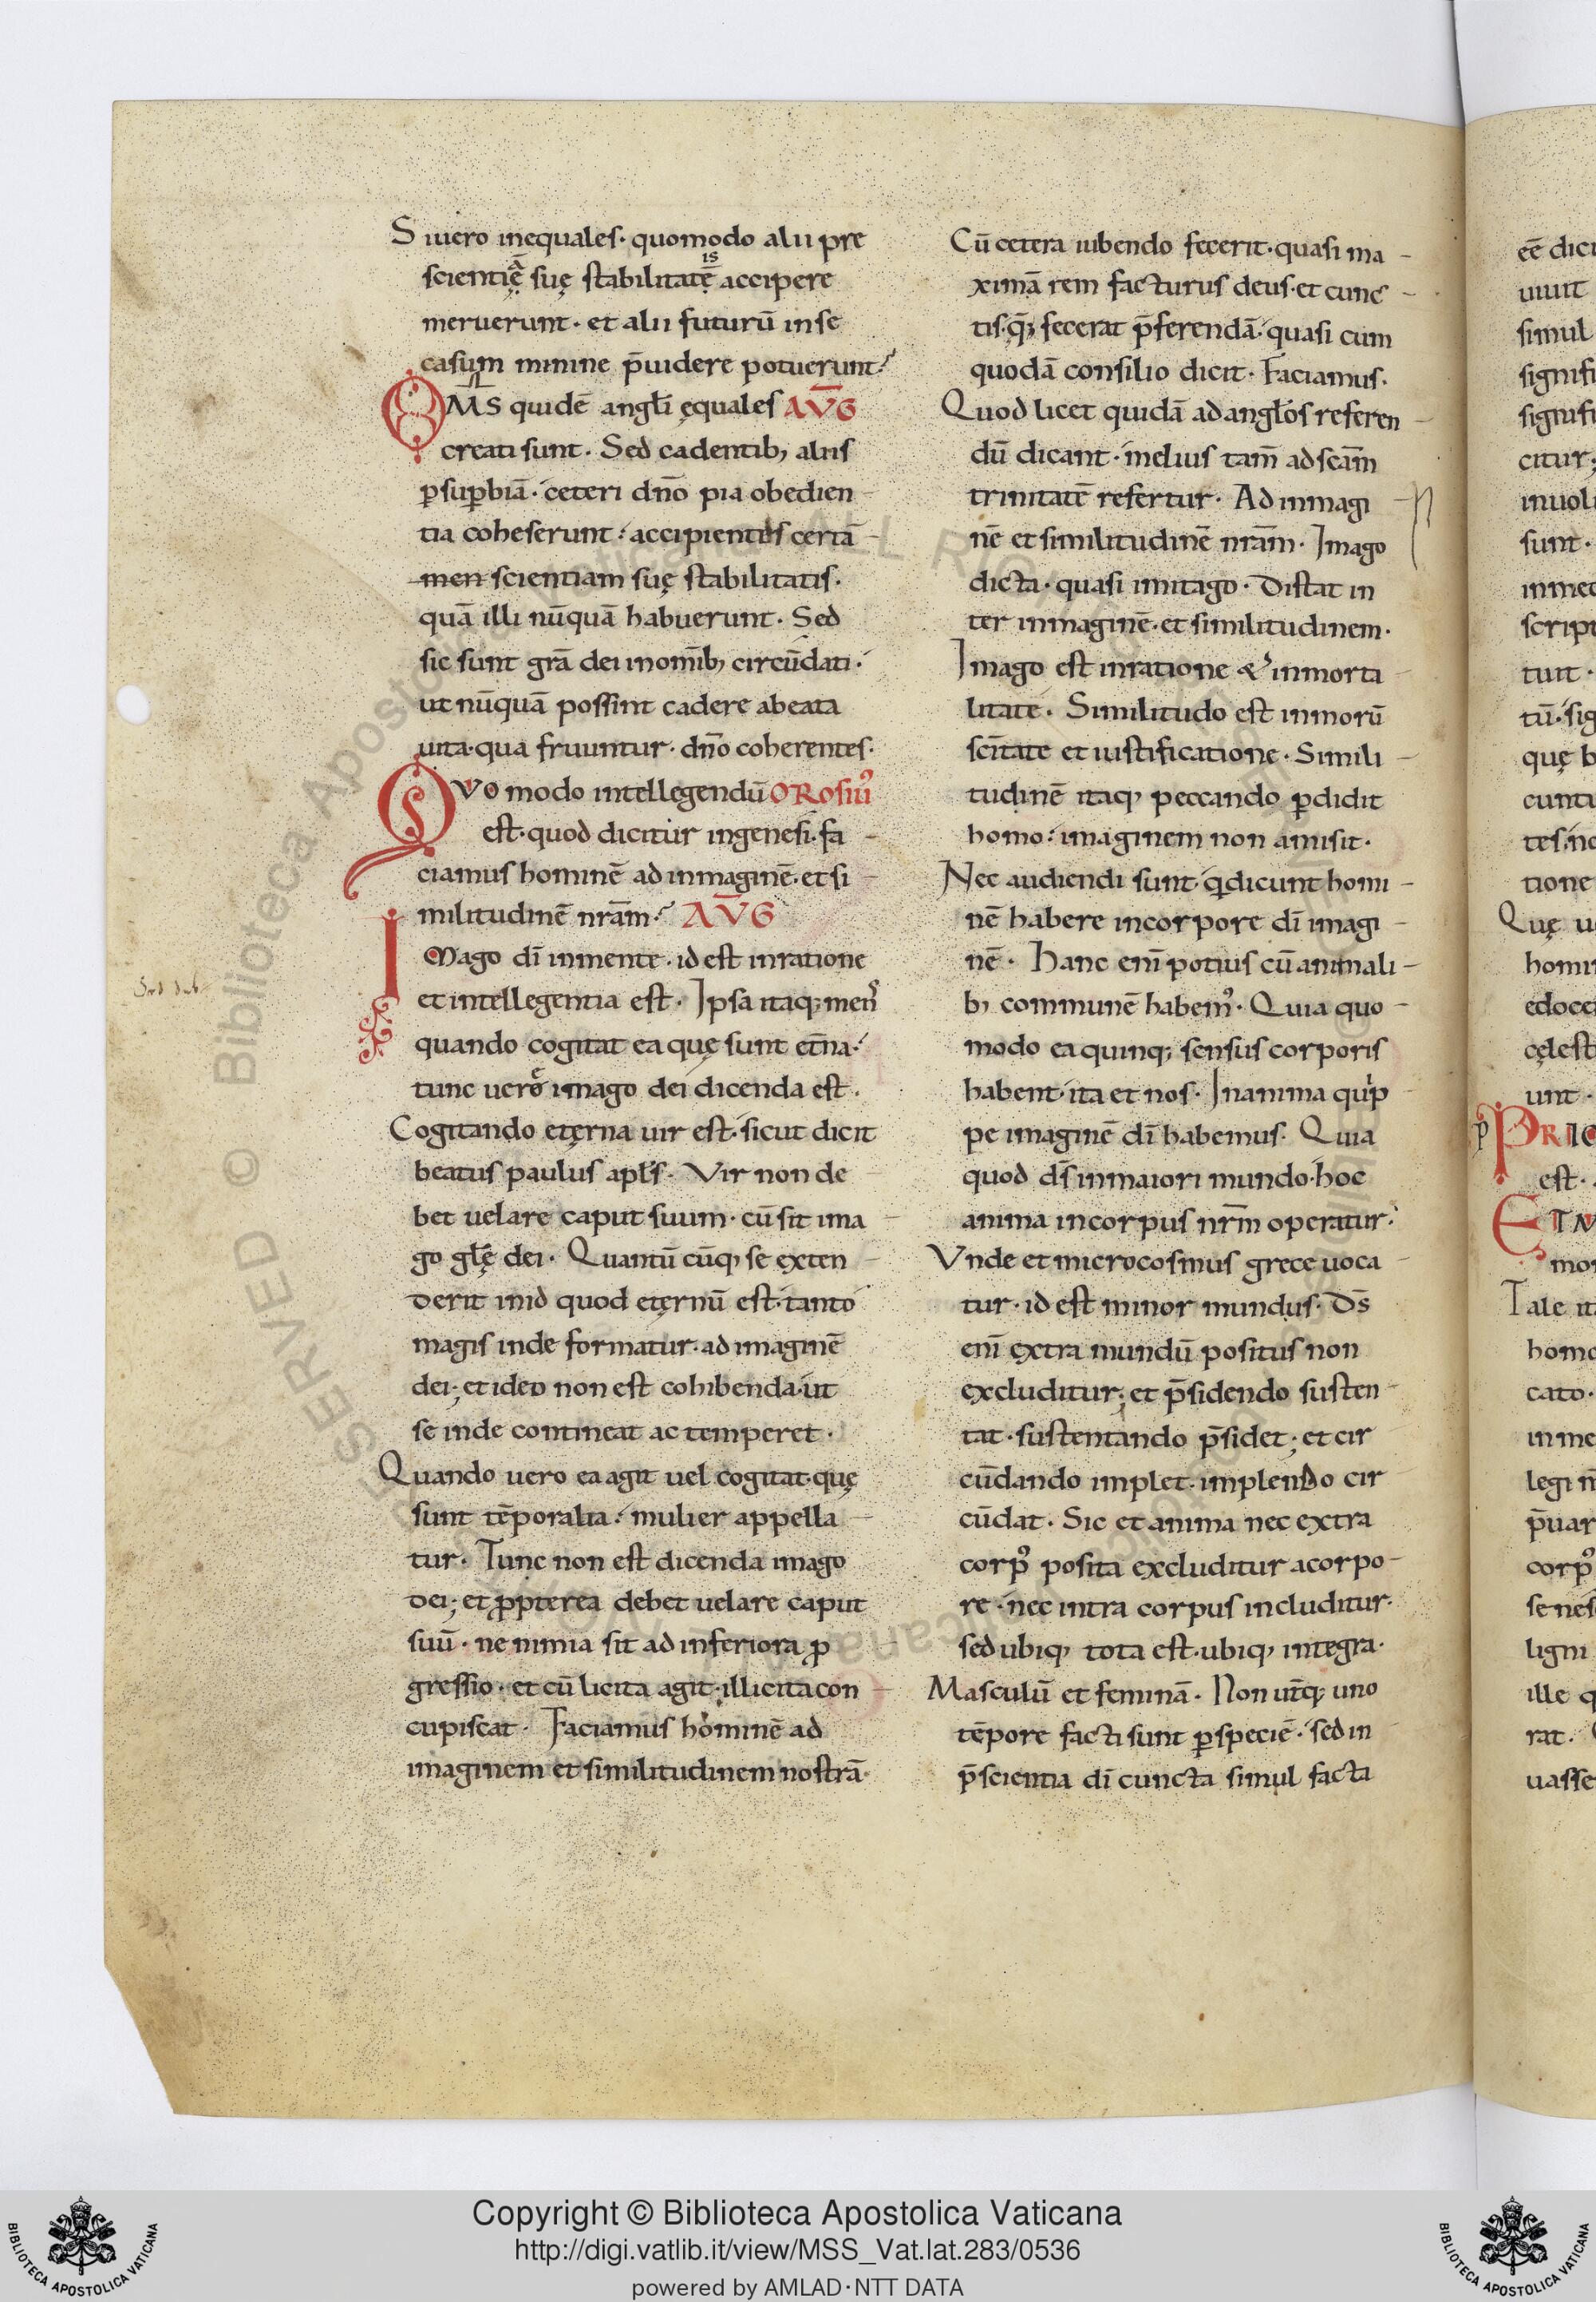 S iuero inequales· quomodo alii pre
scientię̄ suę stabilitatē is accipere
meruerunt· et alii futurū in se
casum minine p̄uidere potuerunt·
OMS̄ quidē angłi ęquales AV̄G
creati sunt. Sed cadentib; aliis
ꝑsuꝑbiā· ceteri dn̄o pia obedien
tia coheserunt· accipientes certā
men scientiam suę stabilitatis·
quā illi nūquā habuerunt. Sed
sic sunt grā dei inomīb; circūdati·
ut nūquā possint cadere abeata
uita· qua fruuntur· dn̄o coherentes·
QVo modo intellegendū OROsiuꝰ
est· quod dicitur ingenesi· fa
ciamus hominē ad inmaginē· et si
militudinē nrām· AV̄G
IMago dī inmente· id est inratione
et intellegentia est· Ipsa itaq; menſ
quando cogitat ea quę sunt et̄na·
tunc uero imago dei dicenda est·
Cogitando etęrna uir est· sicut dicit
beatus paulus apłs· Vir non de
bet uelare caput suum· cū sit ima
go głę dei· Quantū cūq; se exten
derit inid quod etęrnū est· tanto
magis inde formatur· ad imaginē
dei; et ideo non est cohibenda· ut
se inde contineat ac temperet·
Quando uero ea agit uel cogitat· quę
sunt tēporalia· mulier appella
tur· Tunc non est dicenda imago
dei; et ꝓpterea debet uelare caput
suū· ne nimia sit ad inferiora ꝓ
gressio· et cū licita agit· illicita con
cupiscat· Faciamus hominē ad
imaginem et similitudinem nostrā·
Cū cetera iubendo fecerit· quasi ma
ximā rem facturus deus· et cunc
tis· q̄; fecerat p̄ferendā· quasi cum
quodā consilio dicit· Faciamus·
Quod licet quidā ad angłos referen
dū dicant· melius tam̄ ad scām
trinitatē refertur· Ad inmagi
nē et similitudinē nrām· Imago
dicta· quasi imitago· Distat in
ter inmaginē· et similitudinem·
Imago est inratione & inmorta
litate· Similitudo est inmorū
scītate et iustificatione· Simili
tudinē itaq; peccando ꝑdidit
homo· imaginem non amisit·
Nec audiendi sunt· q̇ dicunt homi
nē habere incorpore dī imagi
nē· Hanc enī potius cū animali
b; communē habemꝰ· Quia quo
modo ea quinq; sensus corporis
habent· ita et nos· Inanima quip
pe imaginē dī habemus· Quia
quod ds̄ inmaiori mundo· hoc
anima incorpus nrm̄ operatur·
Vnde et microcosmus grece uoca
tur· id est minor mundus· Ds̄
enī extra mundū positus non
excluditur; et p̄sidendo susten
tat· sustentando p̄sidet; et cir
cūdando implet· implendo cir
cūdat· Sic et anima nec extra
corpꝰ posita excluditur acorpo
re· nec intra corpus includitur·
sed ubiq; tota est· ubiq; integra·
Masculū et feminā· Non ut̄q; uno
tēpore facti sunt ꝑ speciē· sed in
p̄scientia dī cuncta simul facta
eē dici
uiuit
simul
signifi
signifi
citur;
inuol
sunt·
inmed
scrip
tuit·
tū· sig
quę b
cunti
tione
Quę u
homi
edoce
cęlest
unt·
est·
homo
cato·
in me
p̄uar
corpꝰ
ligni
ille q
rat·
uasse
Copyright © Biblioteca Apostolica Vaticana
http://digi.vatlib.it/view/MSS_Vat.lat.283/0536
powered by AMLAD·NTT DATA
BIBLIOTECA APOSTOLICA VATICANA
BIBLIOTECA APOSTOLICA VATICANA